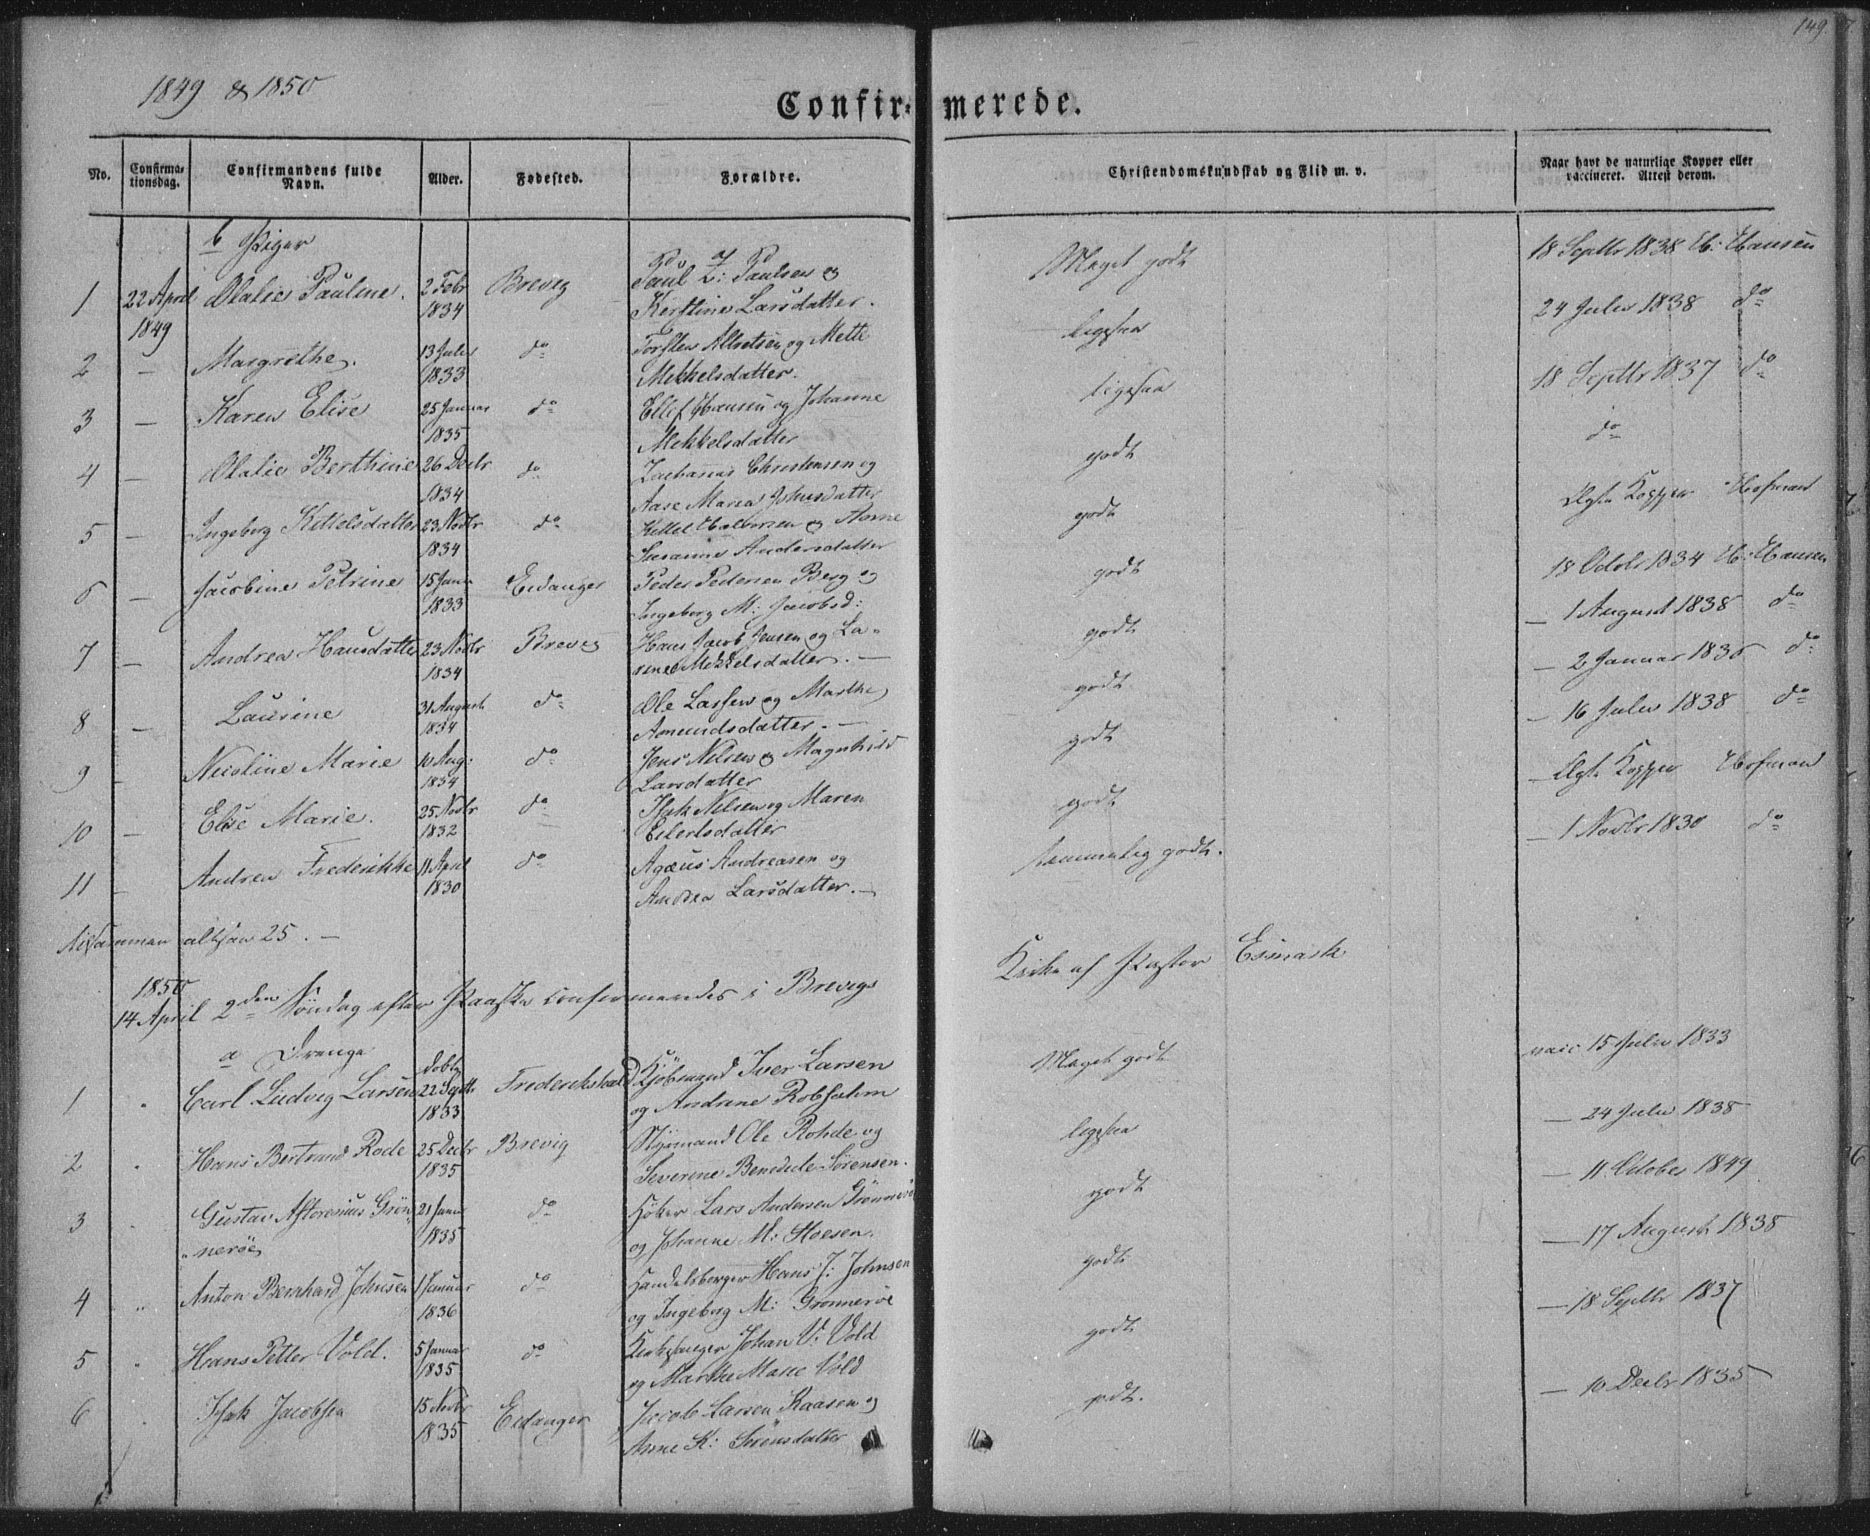 149.
1849 & 1850
Confir- merede.
No. Confirmationsdag. Confirmandens fulde Navn. Alder. Fødested. Forældre. Christendomskundskab og Flid m. v. Naar havt de naturlige Kopper eller vaccineret. Attest derom.
b Piger
1 22 April 1849 Olalie Pauline. 2 Febr 1834 Brevig Paul Paulsen og Kirstine Larsdatter. Meget godt 18 Septbr 1838 H: Hansen
2 — Margrethe. 13 Julii 1833 do Torsten Mette Mekkelsdatter. ligesaa 24 Julii 1838 do
3 — Karen Elise 25 Januar 1835 do Ellef Hansen og Johanne Mekkelsdatter ligesaa 18 Septbr 1837 do
4 — Olalie Berthine 26 Decbr 1834 do Zacharias Christensen og Aase Maria Johnsdatter godt do
5 — Ingeborg Kittelsdatter 23 Novbr 1834 do Kittel Halvorsen og Anne Susanne Andersdatter godt Kopper Hofman
6 — Jacobine Petrine 15 Janu 1833 Eidanger Peder Pedersen Berg og Ingeborg M: Jacobsd: godt 18 Octobr 1834 H: Hansen
7 — Andrea Hansdatter 23 Novbr 1834 Brevig Hans Jacob Jensen og La- Mekkelsdatter. — godt — 1 August 1838 do
8 — Laurine 31 August 1834 do Ole Larsen og Marthe Amundsdatter. — godt — 2 Januar 1836 do
9 — Nicoline Marie 10 Aug: 1834 do Jens Nilsen og Magnhild Larsdatter godt — 16 Julii 1838 do
10 — Elise Marie. 25 Novbr 1832 do Isak Nilsen og Maren Eilertsdatter godt — Kopper Hofman
11 — Andrea Frederikke 11 April 1830 do Agæus Andreasen og Andrea Larsdatter. — temmelig godt. — 1 Novbr 1830 do
Tilsammen altsaa 25. —
1850
14 April 2den Søndag efter Paaske confirmeredes i Brevigs Kirke af Pastor Esmark
a Drenge
1 " Carl Ludvig Larsen døbt 22 Septbr 1833 Frederikshald Kjøbmand Iver Larsen og Andrine Robsahm Meget godt vacc 15 Julii 1833
2 " Hans Bertrand Rode 25 Decbr 1835 Brevig Styrmand Ole Rohde og Severine Benedicte Sørensen. ligesaa — 24 Julii 1838
3 " Gustav Astorenius Grønnerøe 21 Janu 1835 do Høker Lars Andersen Grønnerøe og Johanne M: Hoesen. godt — 11 October 1849
4 " Anton Bernhard Johnsen 1 Januar 1836 do Handelsborger Hans J: Johnsen og Ingeborg M: Grønnerøe godt — 17 August 1838
5 " Hans Petter Vold. 5 Januar 1835 do Kirkesanger Johan V: Vold og Marthe Marie Vold godt — 18 Septbr 1837
6 " Isak Jacobsen 15 Novbr 1835 Eidanger Jacob Larsen Raasen og Anne K: Sørensdatter godt. — 10 Decbr 1835